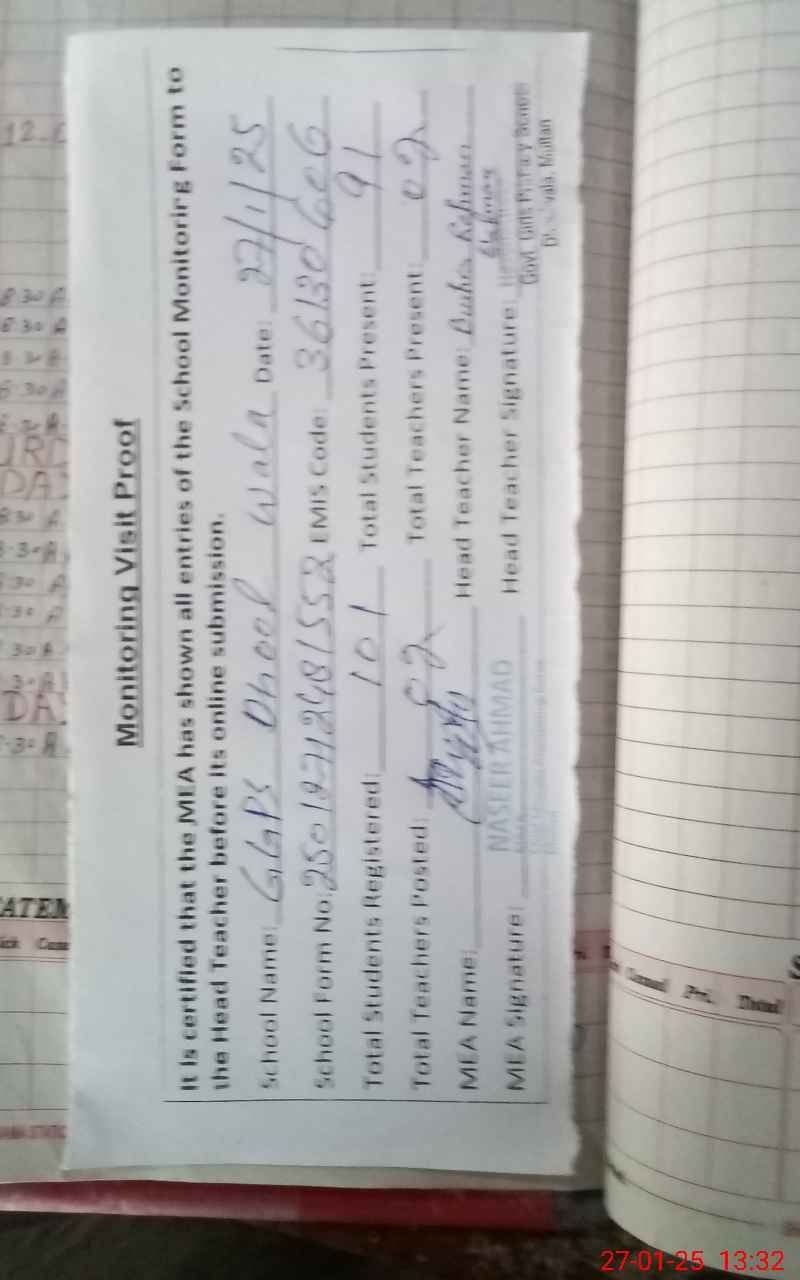 Monitoring Visit Proof
It is certified that the MEA has shown all entries of the School Monitoring Form to
the Head Teacher before its online submission.
School Name: GGPS Dhool Wala Date: 27/1/25
School Form No: 250127124815 52 EMIS Code: 36130606
Total Students Registered: 101 Total Students Present: 91
Total Teachers Posted: 02 Total Teachers Present: 02
MEA Name: Head Teacher Name: Bushra Rehman
MEA Signature: NASEER AHMAD Head Teacher Signature:
Govt. Girls Primary School
Multan
ATEM
Total
27-01-25 13:32